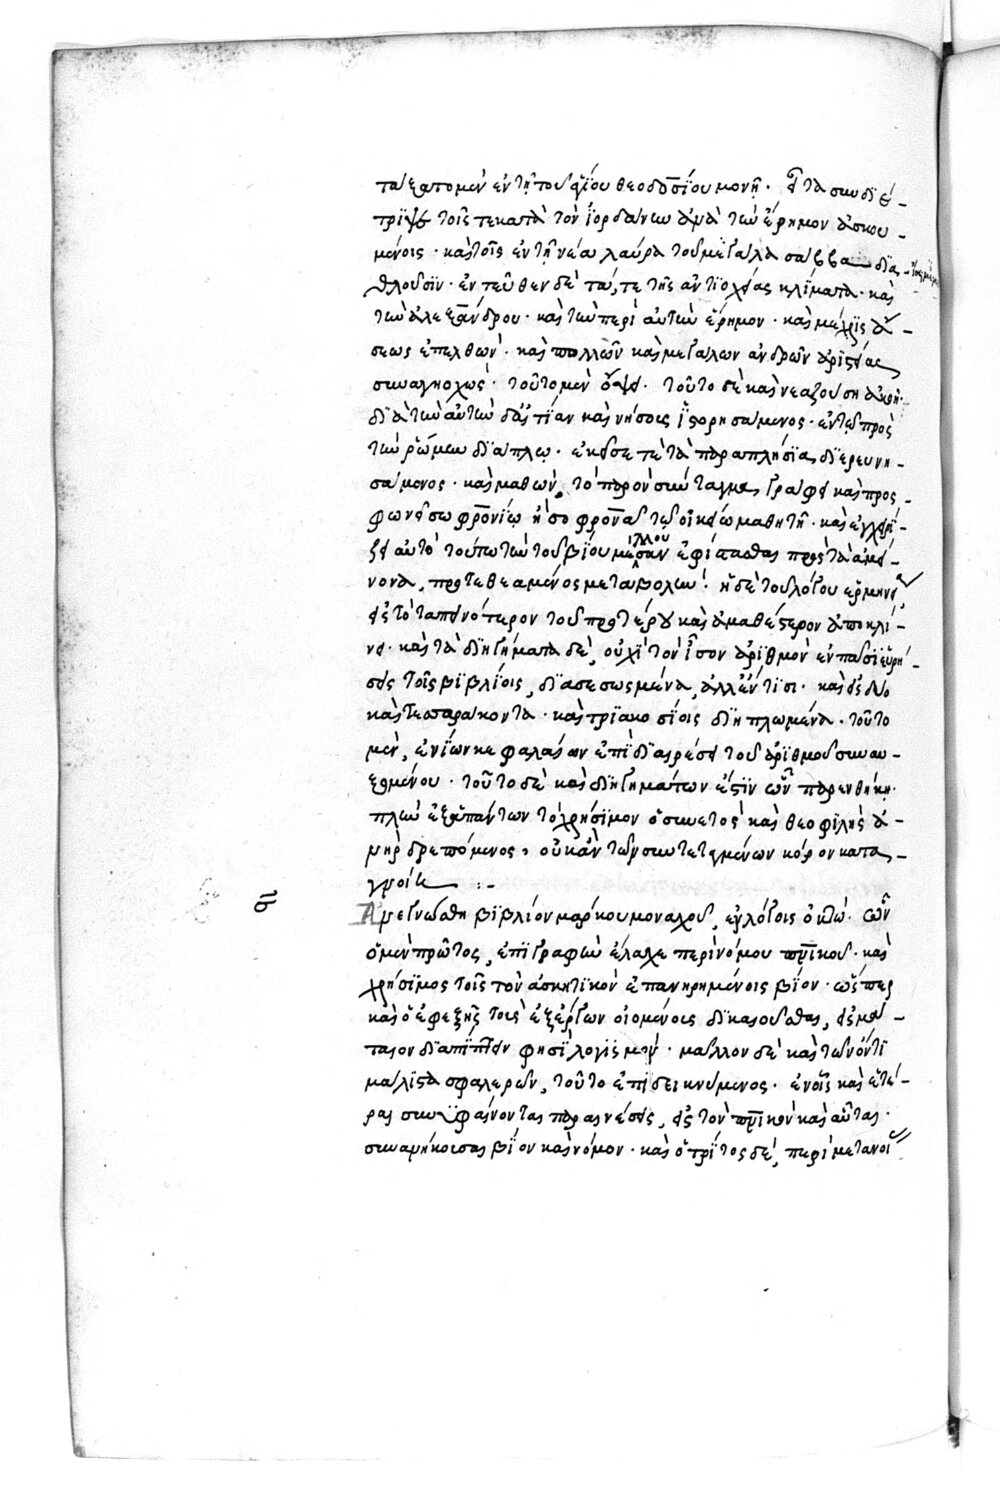 ταξάμενον ἐν τῇ τοῦ ἁγίου θεοδοσίου μονῇ. εἶτα συνδιέ-
τριψε τοῖς τε κατὰ τὸν ἰορδάνην ἀμὰ τὴν ἔρημον ἀσκου-
μένοις· καὶ τοῖς ἐν τῇ νέα λαύρα τοῦ μεγάλου σάββα δια-
θλοῦσιν· ἐντεῦθεν δὲ τά, τε τῆς ἀντιοχείας κλίματα· καὶ
τῶν ἀλεξάνδρου· καὶ τὴν περὶ αὐτὴν ἔρημον· καὶ μέχρις ὀά-
σεως ἐπελθὼν· καὶ πολλῶν καὶ μεγάλων ἀνδρῶν ἀριστείας
συναγηοχὼς· τοῦτο μὲν ὄψει· τοῦτο δὲ καὶ νεαζούση ἀκοῇ·
διὰ τὴν αὐτὴν δὲ αἰτίαν καὶ νήσοις ἱστορησάμενος· ἐν τῷ πρὸς
τὴν ῥώμην διάπλῳ· ἐκεῖσέ τε τὰ παραπλήσια διερευνη-
σάμενος· καὶ μαθὼν, τὸ παρὸν σύνταγμα γράφει καὶ προς-
φωνεῖ σωφρονίῳ ἢ σοφρονᾶ τῷ οἰκείω μαθητῇ· καὶ ἐγχειρί-
ζει αὐτὸ τούπω τὴν τοῦ βίου μέλλουσαν ἐφίστασθαι πρὸς τὰ ἀμεί-
νονα, προτεθεαμένος μεταβολὴν· ἡ δὲ τοῦ λόγου ἑρμηνεία
εἰς τὸ ταπεινότερον τοῦ προτέρου καὶ ἀμαθέστερον ἀποκλί-
νει· καὶ τὰ διηγήματα δὲ, οὐχὶ τὸν ἴσον ἀριθμὸν ἐν πᾶσι εὑρή-
σεις τοῖς βιβλίοις, διασεσωσμένα, ἀλλ' ἔν τισι· καὶ εἰς δύο
καὶ τεσσαράκοντα· καὶ τριακοσίοις διηπλωμένα· τοῦτο
μὲν, ἐνίων κεφαλαίων ἐπὶ διαιρέσει τοῦ ἀριθμοῦ συναυ-
ξομένου· τοῦτο δὲ καὶ διηγημάτων ἐστὶν ὧν παρενθήκῃ·
πλὴν ἐξ ἁπάντων τὸ χρήσιμον ὁ συνετὸς καὶ θεοφιλὴς ἀ-
νὴρ δρεπόμενος, οὐκ ἂν τῶν συντεταγμένων κόρον κατα-
γνοίη :-
Ἀνεγνώσθη βιβλίον μάρκου μοναχοῦ, ἐν λόγοις ὀκτώ· ὧν
ὁ μὲν πρῶτος, ἐπιγραφὴν ἔλαχε περὶ νόμου πνικοῦ· καὶ
χρήσιμος τοῖς τὸν ἀσκητικὸν ἐπανηρημένοις βίον· ὥσπερ
καὶ ὁ ἐφεξῆς τοὺς ἐξ ἔργων οἰομένοις δικαιοῦσθαι, εἰς μά-
ταιον διαπίπτειν φησὶ λογισμὸν· μᾶλλον δὲ καὶ τῶν ὄντι
μάλιστα σφαλερῶν, τοῦτο ἐπιδεικνύμενος· ἐν οἷς καὶ ἑτέ-
ρας συνυφαίνοντας παραινέσεις, εἰς τὸν πνικὸν καὶ αὗται·
συνανηκούσας βίον καὶ νόμον· καὶ ὁ τρίτος δὲ, περὶ μετανοί